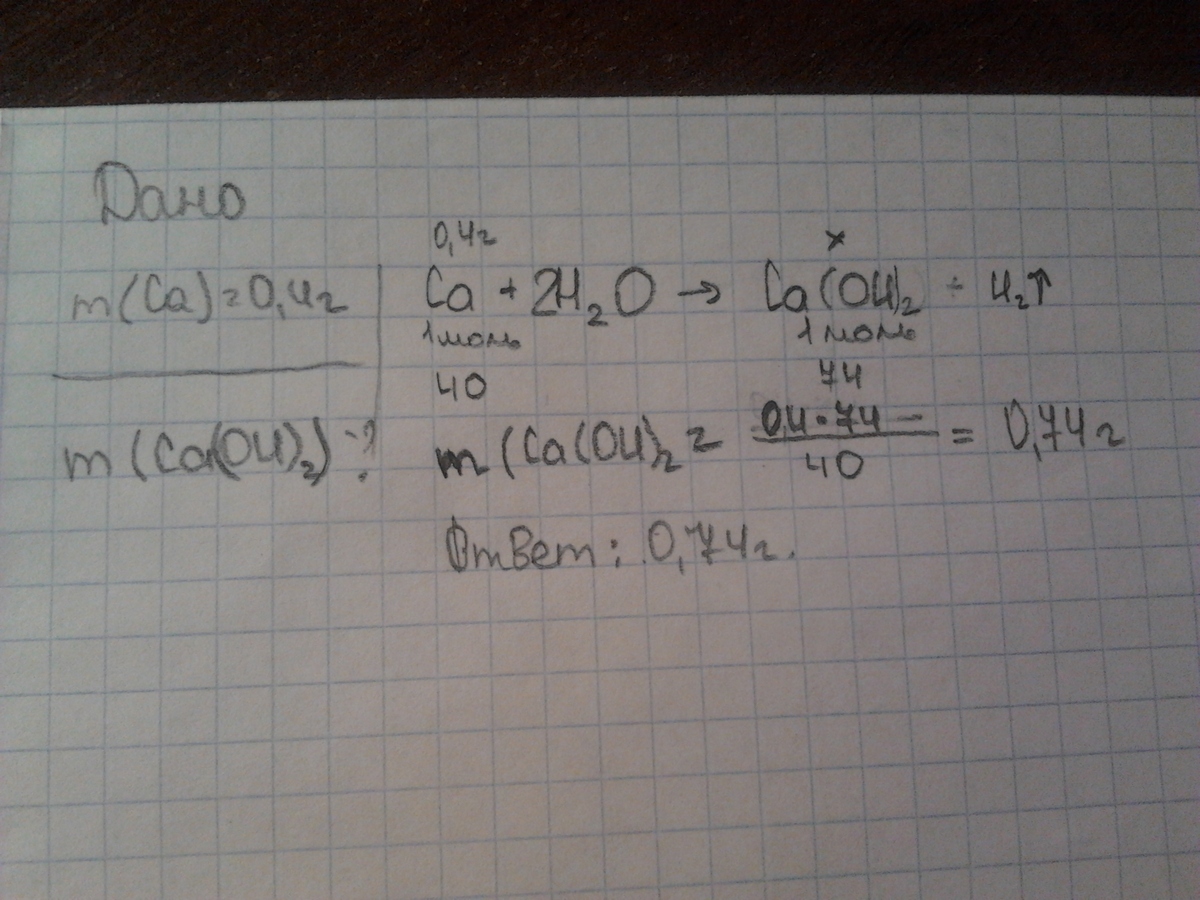 Дано
0,4г x
m(Ca)=0,4г Ca + 2H₂O → Ca(OH)₂ + H₂↑
1моль 1моль
40 74
m(Ca(OH)₂)-? m(Ca(OH)₂ = 0,4·74 / 40 = 0,74г
Ответ: 0,74г.